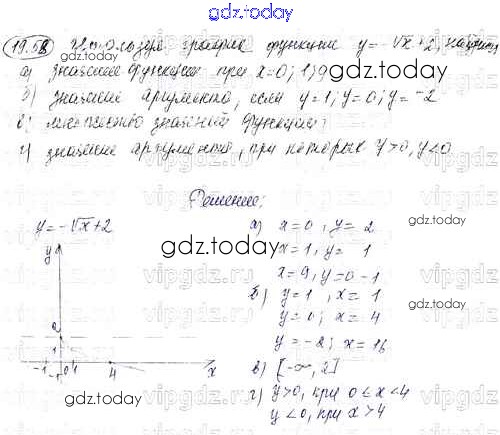 gdz.today
19.58 Используя график функции y=-√x+2, найдите
а) значение функции при x=0; 1; 9
gdz.today
б) значение аргумента, если y=1; y=0; y=-2
в) множество значений функции;
г) значение аргумента, при которых y>0, y<0
gdz.today
Решение:
y=-√x+2
а) x=0, y=2
x=1, y=1
x=9, y=0-1
б) y=1, x=1
y=0; x=4
y=-2; x=16
в) [-∞, 2]
г) y>0, при 0≤x<4
y<0, при x>4
y
gdz.today
2
1
-1 0 1 4 x
-1
gdz.today
gdz.today
vipgdz.ru